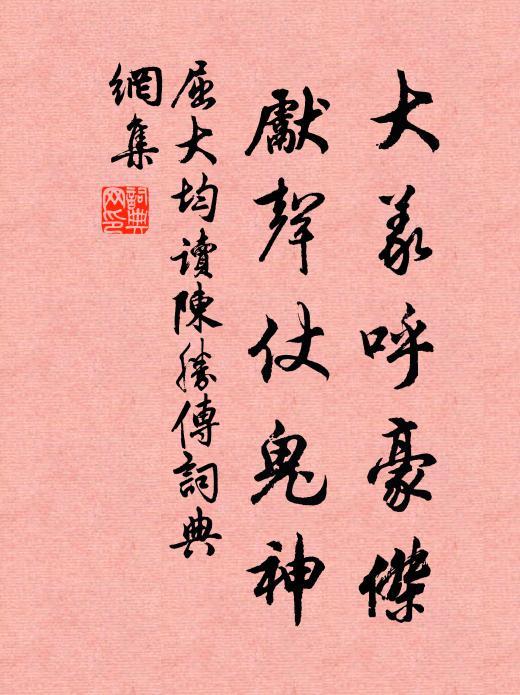 大義呼豪傑
獻聲仗鬼神
屈大均讀陳勝傳詞典
網集
詞典
网印